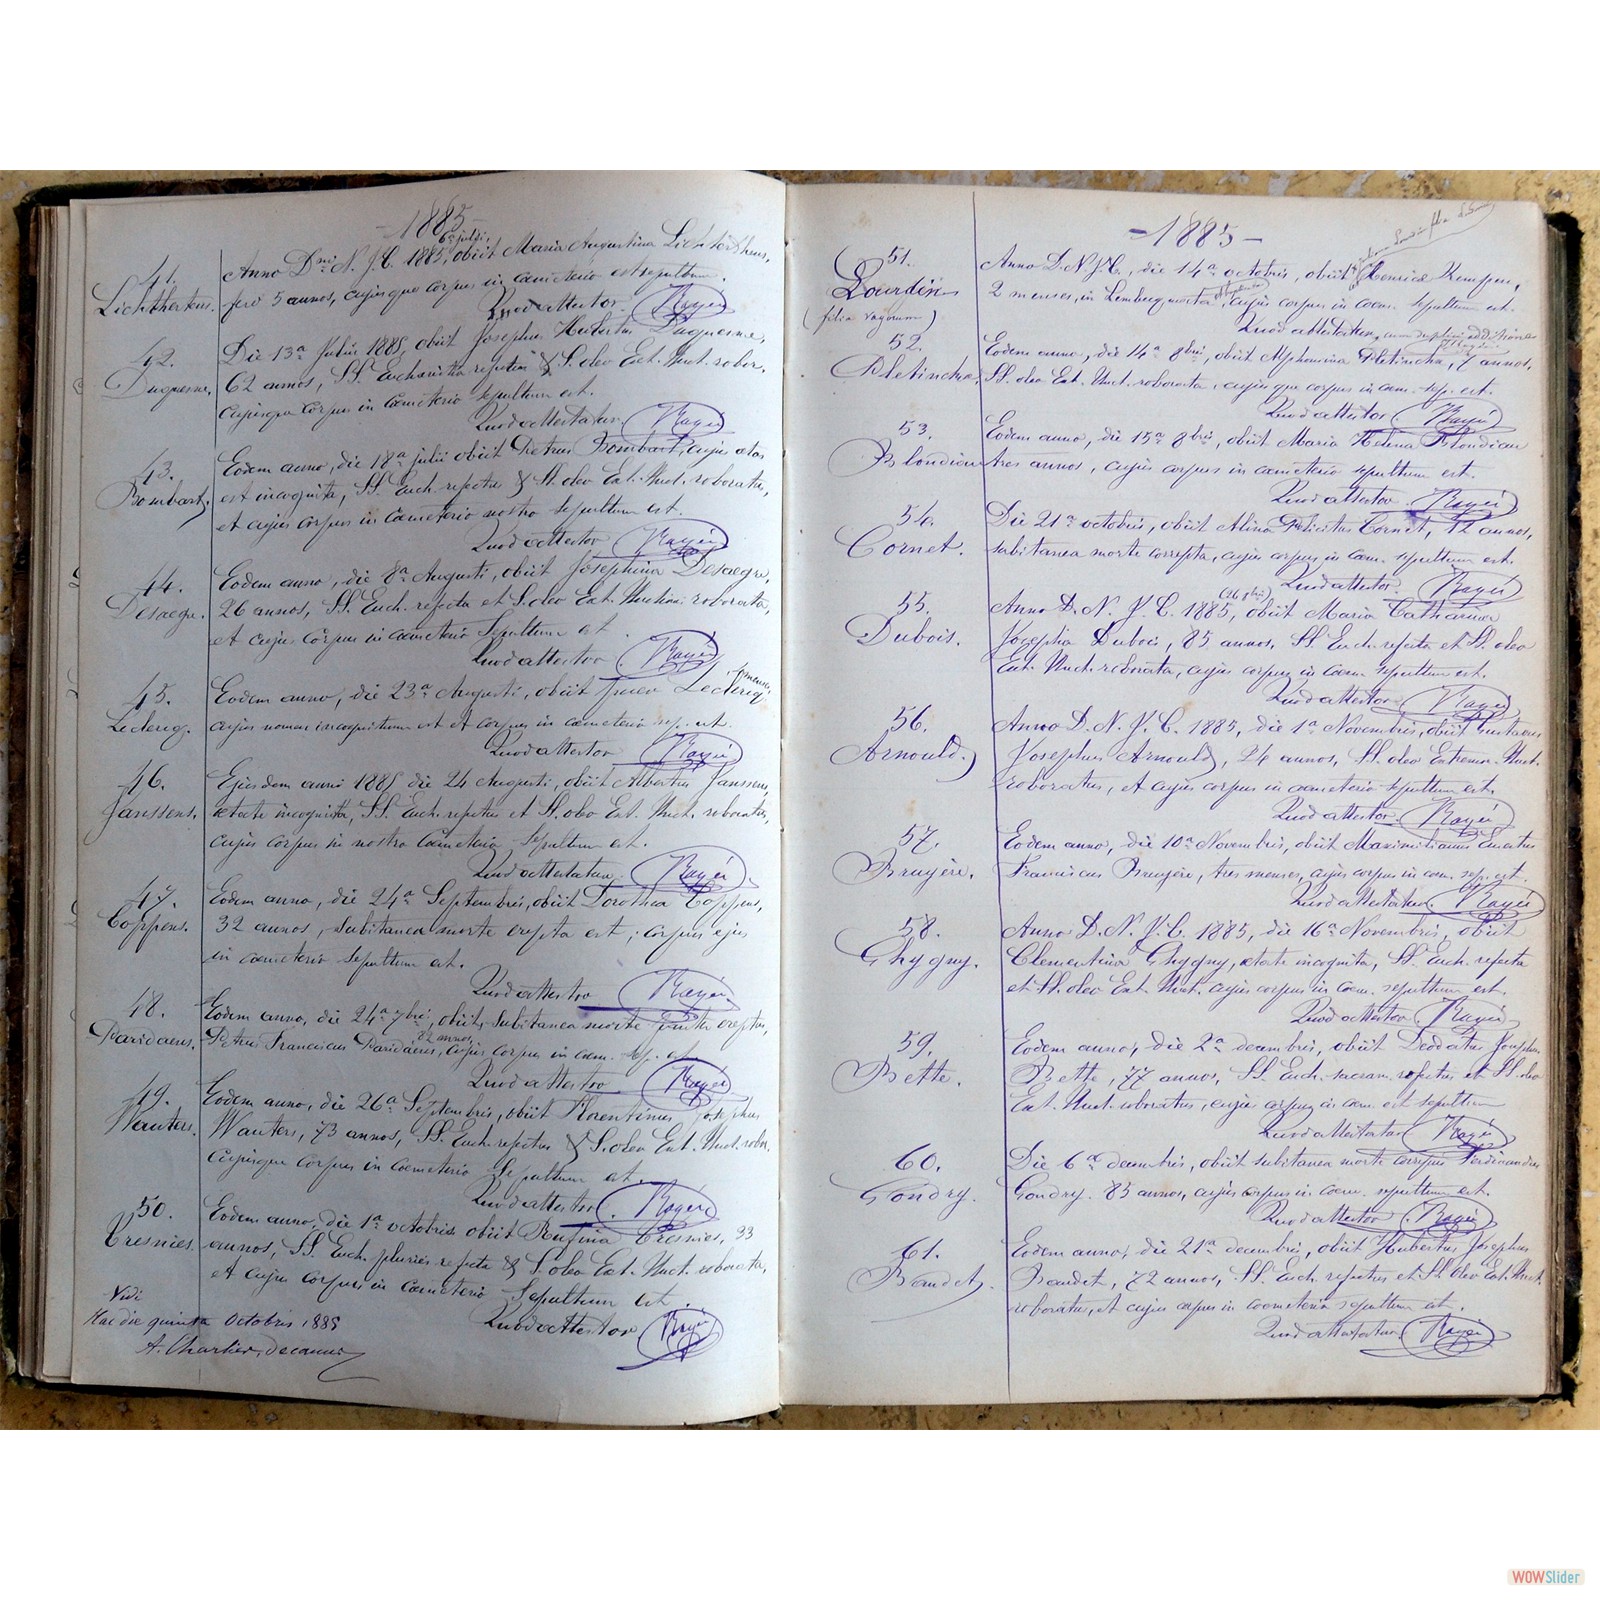 -1885-
6ª julii,
41. Anno Dni N. J. C. 1885, obiit Maria Augustina Lichtherkens,
Lichtherkens. fere 5 annos, cujusque corpus in cœmeterio est sepultum.
Quod attestor Rayée
42. Die 13ª Julii 1885, obiit Josephus Hubertus Duquesne,
Duquesne. 62 annos, SS. Eucharistia refectus & S. oleo Ext. Unct. robor.
cujusque corpus in cœmeterio sepultum est.
Quod attestatur Rayée
43. Eodem anno, die 18ª julii obiit Petrus Bombart, cujus ætas
Bombart. est incognita, SS. Euch. refectus & St. oleo Ext. Unct. roboratus,
et cujus corpus in cœmeterio nostro sepultum est.
Quod attestor Rayée
44. Eodem anno, die 8ª Augusti, obiit Josephina Desaegre,
Desaegre. 26 annos, SS. Euch. refecta et S. oleo Ext. Unctionis roborata,
et cujus corpus in cœmeterio sepultum est.
Quod attestor Rayée
45. Eodem anno, die 23ª Augusti, obiit Leclercq
Leclercq. cujus nomen incognitum est et corpus in cœmeterio sep. est.
Quod attestor Rayée
46. Ejusdem anni 1885 die 24 Augusti, obiit Albertus Janssens,
Janssens. ætate incognita, SS. Euch. refectus et St. oleo Ext. Unct. roboratus,
cujus corpus in nostro Cœmeterio sepultum est.
Quod attestatur Rayée
47. Eodem anno, die 24ª Septembris, obiit Dorothea Coppens,
Coppens. 32 annos, subitanea morte erepta est; corpus ejus
in cœmeterio sepultum est.
Quod attestor Rayée
48. Eodem anno, die 24ª 7bris, obiit, subitanea morte ereptus,
82 annos,
Paridaens. Petrus Franciscus Paridaens, cujus corpus in cœm. sep. est
Quod attestor Rayée
49. Eodem anno, die 26ª Septembris, obiit Florentinus Josephus
Wauters. Wauters, 73 annos, SS. Euch. refectus & S. oleo Ext. Unct. robor.
cujusque corpus in cœmeterio sepultum est.
Quod attestor Rayée
50. Eodem anno, die 1ª octobris obiit Rufina Cresnies, 33
Cresnies. annos, SS. Euch. pluries refecta & S. oleo Ext. Unct. roborata,
et cujus corpus in cœmeterio sepultum est.
Quod attestor Rayée
Vidi
Hac die quinta Octobris 1885
A. Chartier, decanus
-1885-
51. Anno D. N. J. C., die 14ª octobris, obiit Henrica Kempen,
Lourdin 2 menses, in Lembecq morta, cujus corpus in cœm. sepultum est.
(filia vagorum)
Quod attestatur,
52. Eodem anno, die 14ª 8bris, obiit Alphonsina Pletincka, 7 annos,
Pletincka. St. oleo Ext. Unct. roborata, cujusque corpus in cœm. sep. est.
Quod attestor Rayée
53. Eodem anno, die 15ª 8bris, obiit Maria Helena Blondiau
Blondiau tres annos, cujus corpus in cœmeterio sepultum est.
Quod attestor Rayée
54. Die 21ª octobris, obiit Alina Felicitas Cornet, 12 annos,
Cornet. subitanea morte correpta, cujus corpus in cœm. sepultum est.
Quod attestor Rayée
(26 8bris)
55. Anno D. N. J. C. 1885, obiit Maria Catharina
Dubois. Josepha Dubois, 85 annos, SS. Euch. refecta et St. oleo
Ext. Unct. roborata, cujus corpus in cœm. sepultum est.
Quod attestor Rayée
56. Anno D. N. J. C. 1885, die 1ª Novembris, obiit Gustavus
Arnould. Josephus Arnould, 24 annos, SS. oleo Extrem. Unct.
roboratus, et cujus corpus in cœmeterio sepultum est.
Quod attestor Rayée
57. Eodem anno, die 10ª Novembris, obiit Maximilianus
Bruyère. Franciscus Bruyère, tres menses, cujus corpus in cœm. sep. est.
Quod attestatur Rayée
58. Anno D. N. J. C. 1885, die 16ª Novembris, obiit
Ghygny. Clementina Ghygny, ætate incognita, SS. Euch. refecta
et St. oleo Ext. Unct. cujus corpus in cœm. sepultum est.
Quod attestor Rayée
59. Eodem anno, die 2ª decembris, obiit Deodatus Josephus
Bette. Bette, 77 annos, SS. Euch. sacram. refectus et St. oleo
Ext. Unct. roboratus, cujus corpus in cœm. est sepultum
Quod attestatur Rayée
60. Die 6ª decembris, obiit subitanea morte correptus Ferdinandus
Gondry. Gondry. 85 annos, cujus corpus in cœm. sepultum est.
Quod attestor Rayée
61. Eodem anno, die 21ª decembris, obiit Hubertus Josephus
Baudet. Baudet, 72 annos, SS. Euch. refectus et St. oleo Ext. Unct.
roboratus, et cujus corpus in cœmeterio sepultum est.
Quod attestatur Rayée
WOWSlider